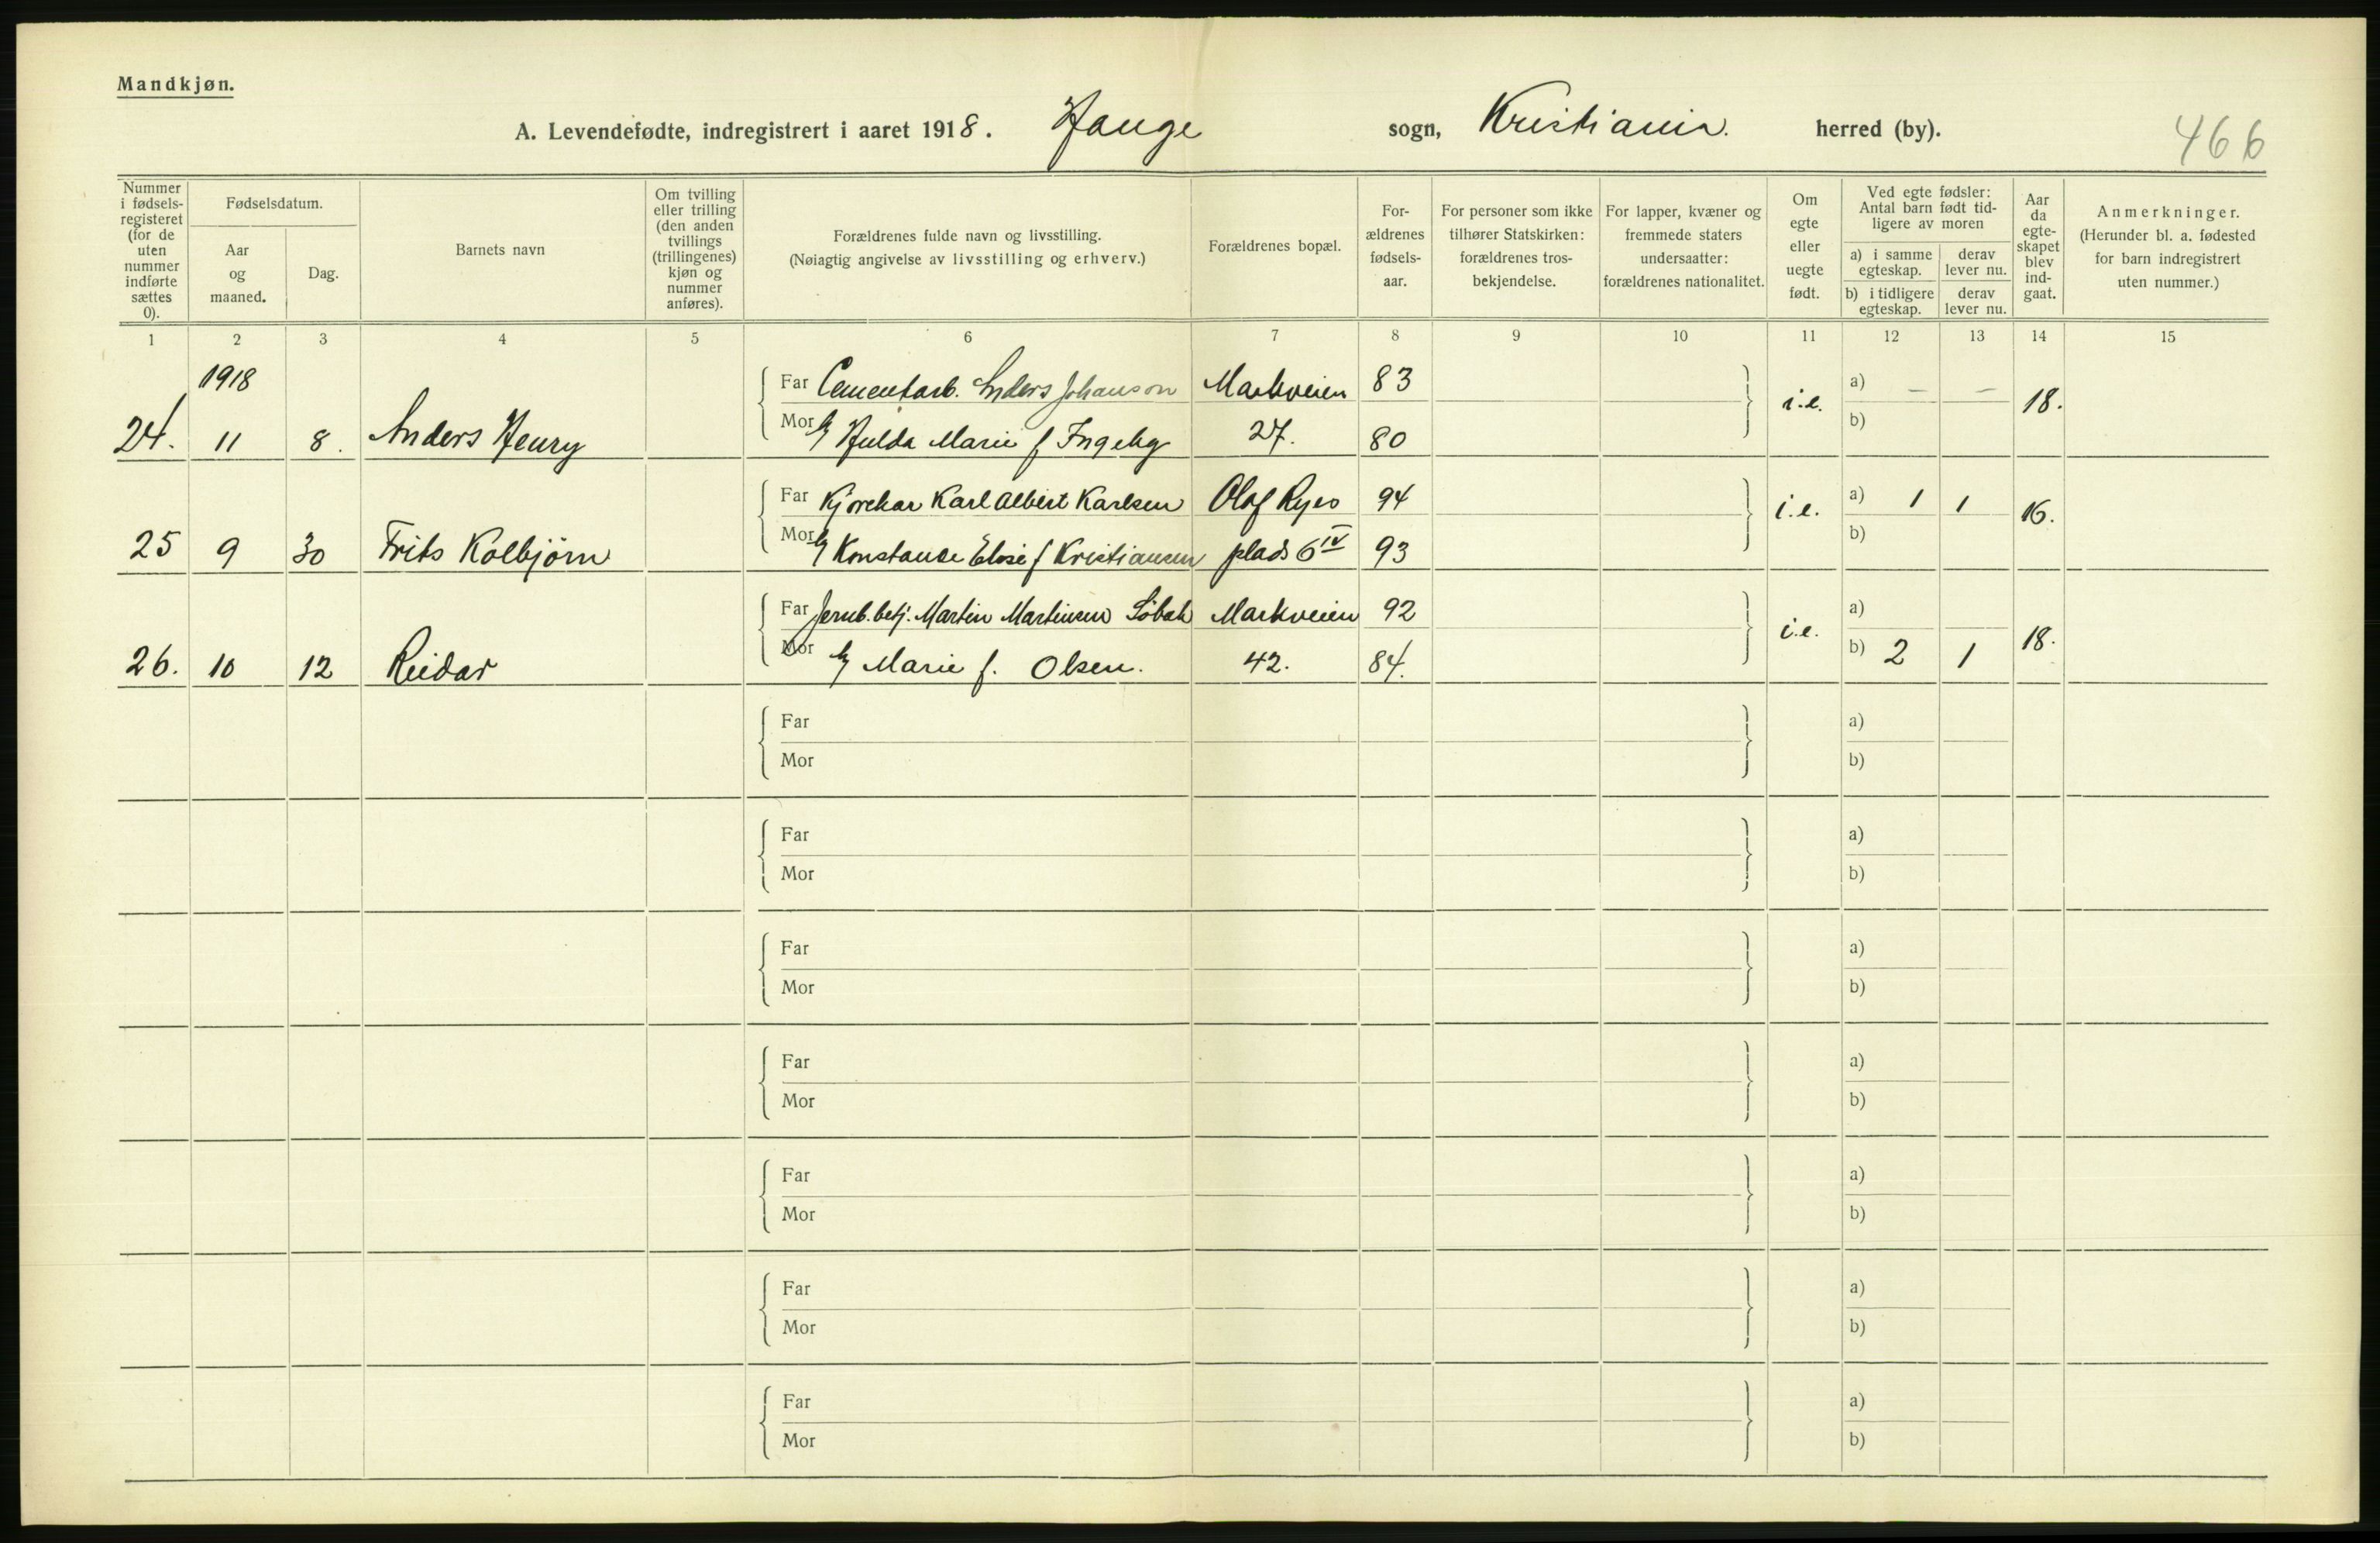 Mandkjøn.
A. Levendefødte, indregistrert i aaret 1918. Hauge sogn, Kristiania. herred (by).
466
Nummer i fødsels-registeret (for de uten nummer indførte sættes 0).
Fødselsdatum.
Aar og maaned.
Dag.
Barnets navn
Om tvilling eller trilling (den anden tvillings (trillingenes) kjøn og nummer anføres).
Forældrenes fulde navn og livsstilling.
(Nøiagtig angivelse av livsstilling og erhverv.)
Forældrenes bopæl.
For-ældrenes fødsels-aar.
For personer som ikke tilhører Statskirken: forældrenes tros-bekjendelse.
For lapper, kvæner og fremmede staters undersaatter: forældrenes nationalitet.
Om egte eller uegte født.
Ved egte fødsler: Antal barn født tid-ligere av moren
a) i samme egteskap.
derav lever nu.
b) i tidligere egteskap.
derav lever nu.
Aar da egte-skapet blev ind-gaat.
Anmerkninger.
(Herunder bl. a. fødested for barn indregistrert uten nummer.)
1 2 3 4 5 6 7 8 9 10 11 12 13 14 15
1918
Far Cementarb. Anders Johanson Markveien 83 a) — —
24. 11 8. Anders Henry Mor Hulda Marie f 27. 80 i.e. b) 18.
Far Kjørekar Karl Albert Karlsen Olaf Ryes 94 a) 1 1
25 9 30 Frits Kolbjørn Mor Konstance f Kristiansen plads 6 IV 93 i.e. b) 16.
Far Jernb.betj. Martin Martinsen Markveien 92 a)
26. 10 12 Reidar Mor Marie f. Olsen. 42. 84. i.e. b) 2 1 18.
Far a)
Mor b)
Far a)
Mor b)
Far a)
Mor b)
Far a)
Mor b)
Far a)
Mor b)
Far a)
Mor b)
Far a)
Mor b)